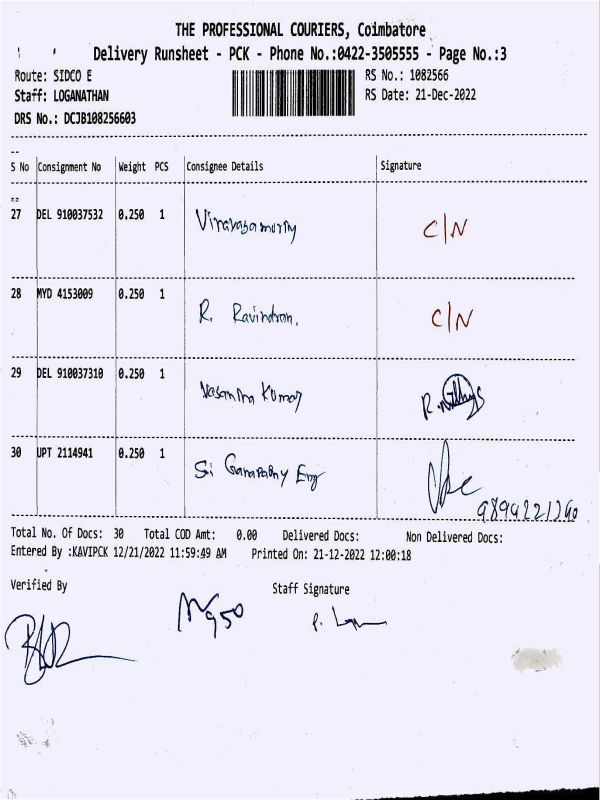 THE PROFESSIONAL COURIERS, Coimbatore
Delivery Runsheet - PCK - Phone No.:0422-3505555 - Page No.:3
Route: SIDCO E RS No.: 1082566
Staff: LOGANATHAN RS Date: 21-Dec-2022
DRS No.: DCJB108256603
S No Consignment No Weight PCS Consignee Details Signature
27 DEL 910037532 0.250 1 C/N
28 MYD 4153009 0.250 1 R. Ravindran. C/N
29 DEL 910037310 0.250 1 Vasantha Kumar
30 UPT 2114941 0.250 1 Sri Ganapathy Eng
Total No. Of Docs: 30 Total COD Amt: 0.00 Delivered Docs: Non Delivered Docs:
Entered By :KAVIPCK 12/21/2022 11:59:49 AM Printed On: 21-12-2022 12:00:18
Verified By Staff Signature